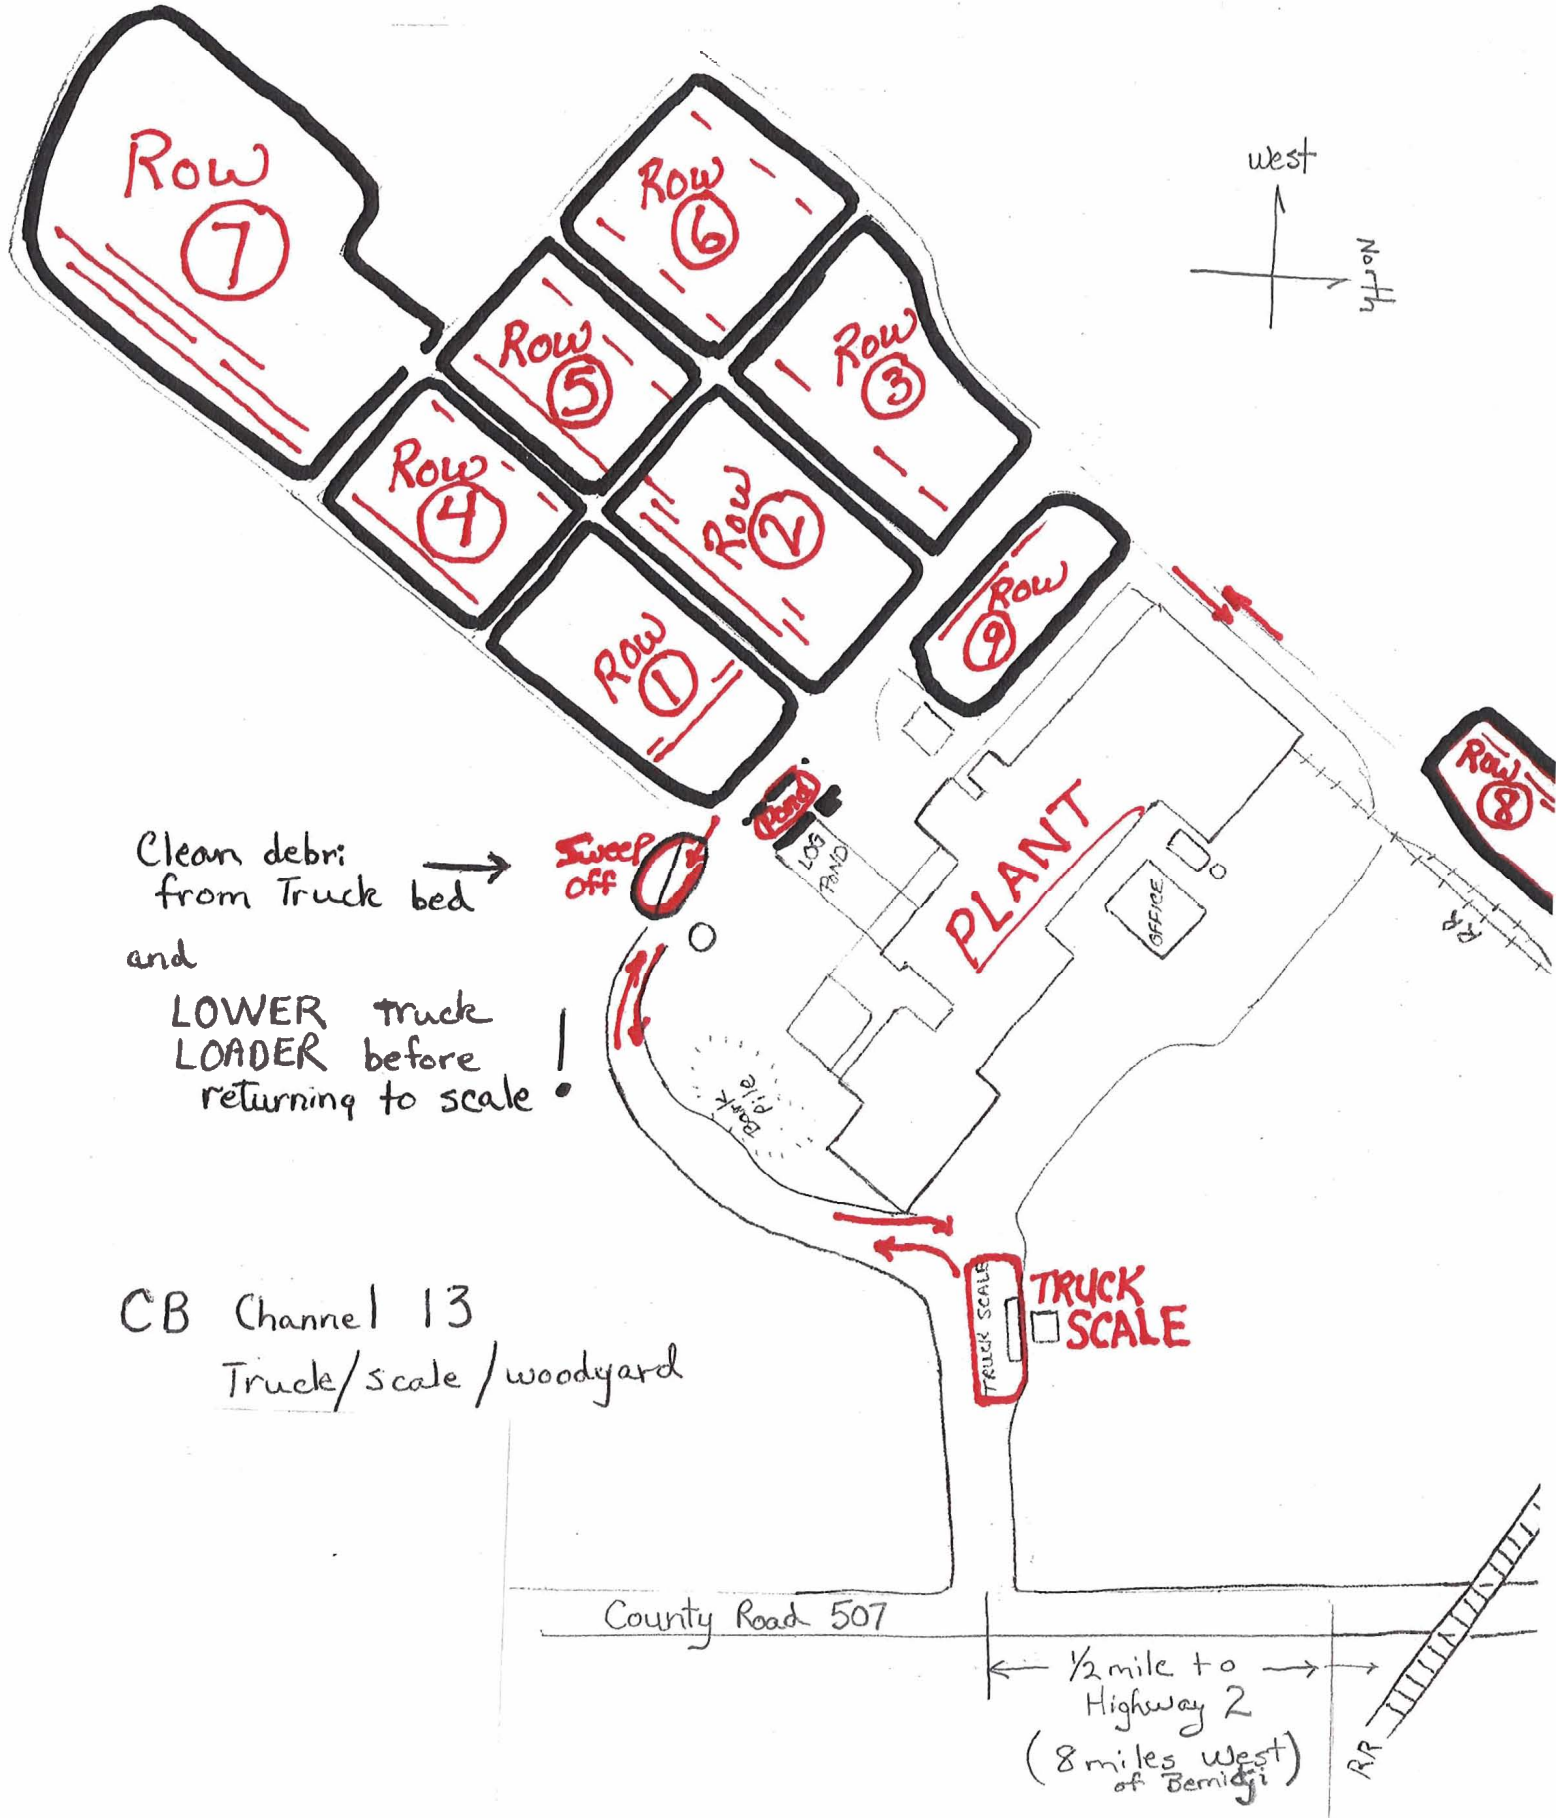 Row
7
Row
6
west
North
Row
5
Row
3
Row
4
Row
2
Row
9
Row
1
Row
8
Pond
LOG
POND
PLANT
OFFICE
RR
Clean debri
from Truck bed
and
LOWER truck
LOADER before
returning to scale !
Sweep
off
Bark
Pile
TRUCK SCALE
TRUCK
SCALE
CB Channel 13
Truck/scale/woodyard
County Road 507
1/2 mile to
Highway 2
(8 miles west)
of Bemidji
RR